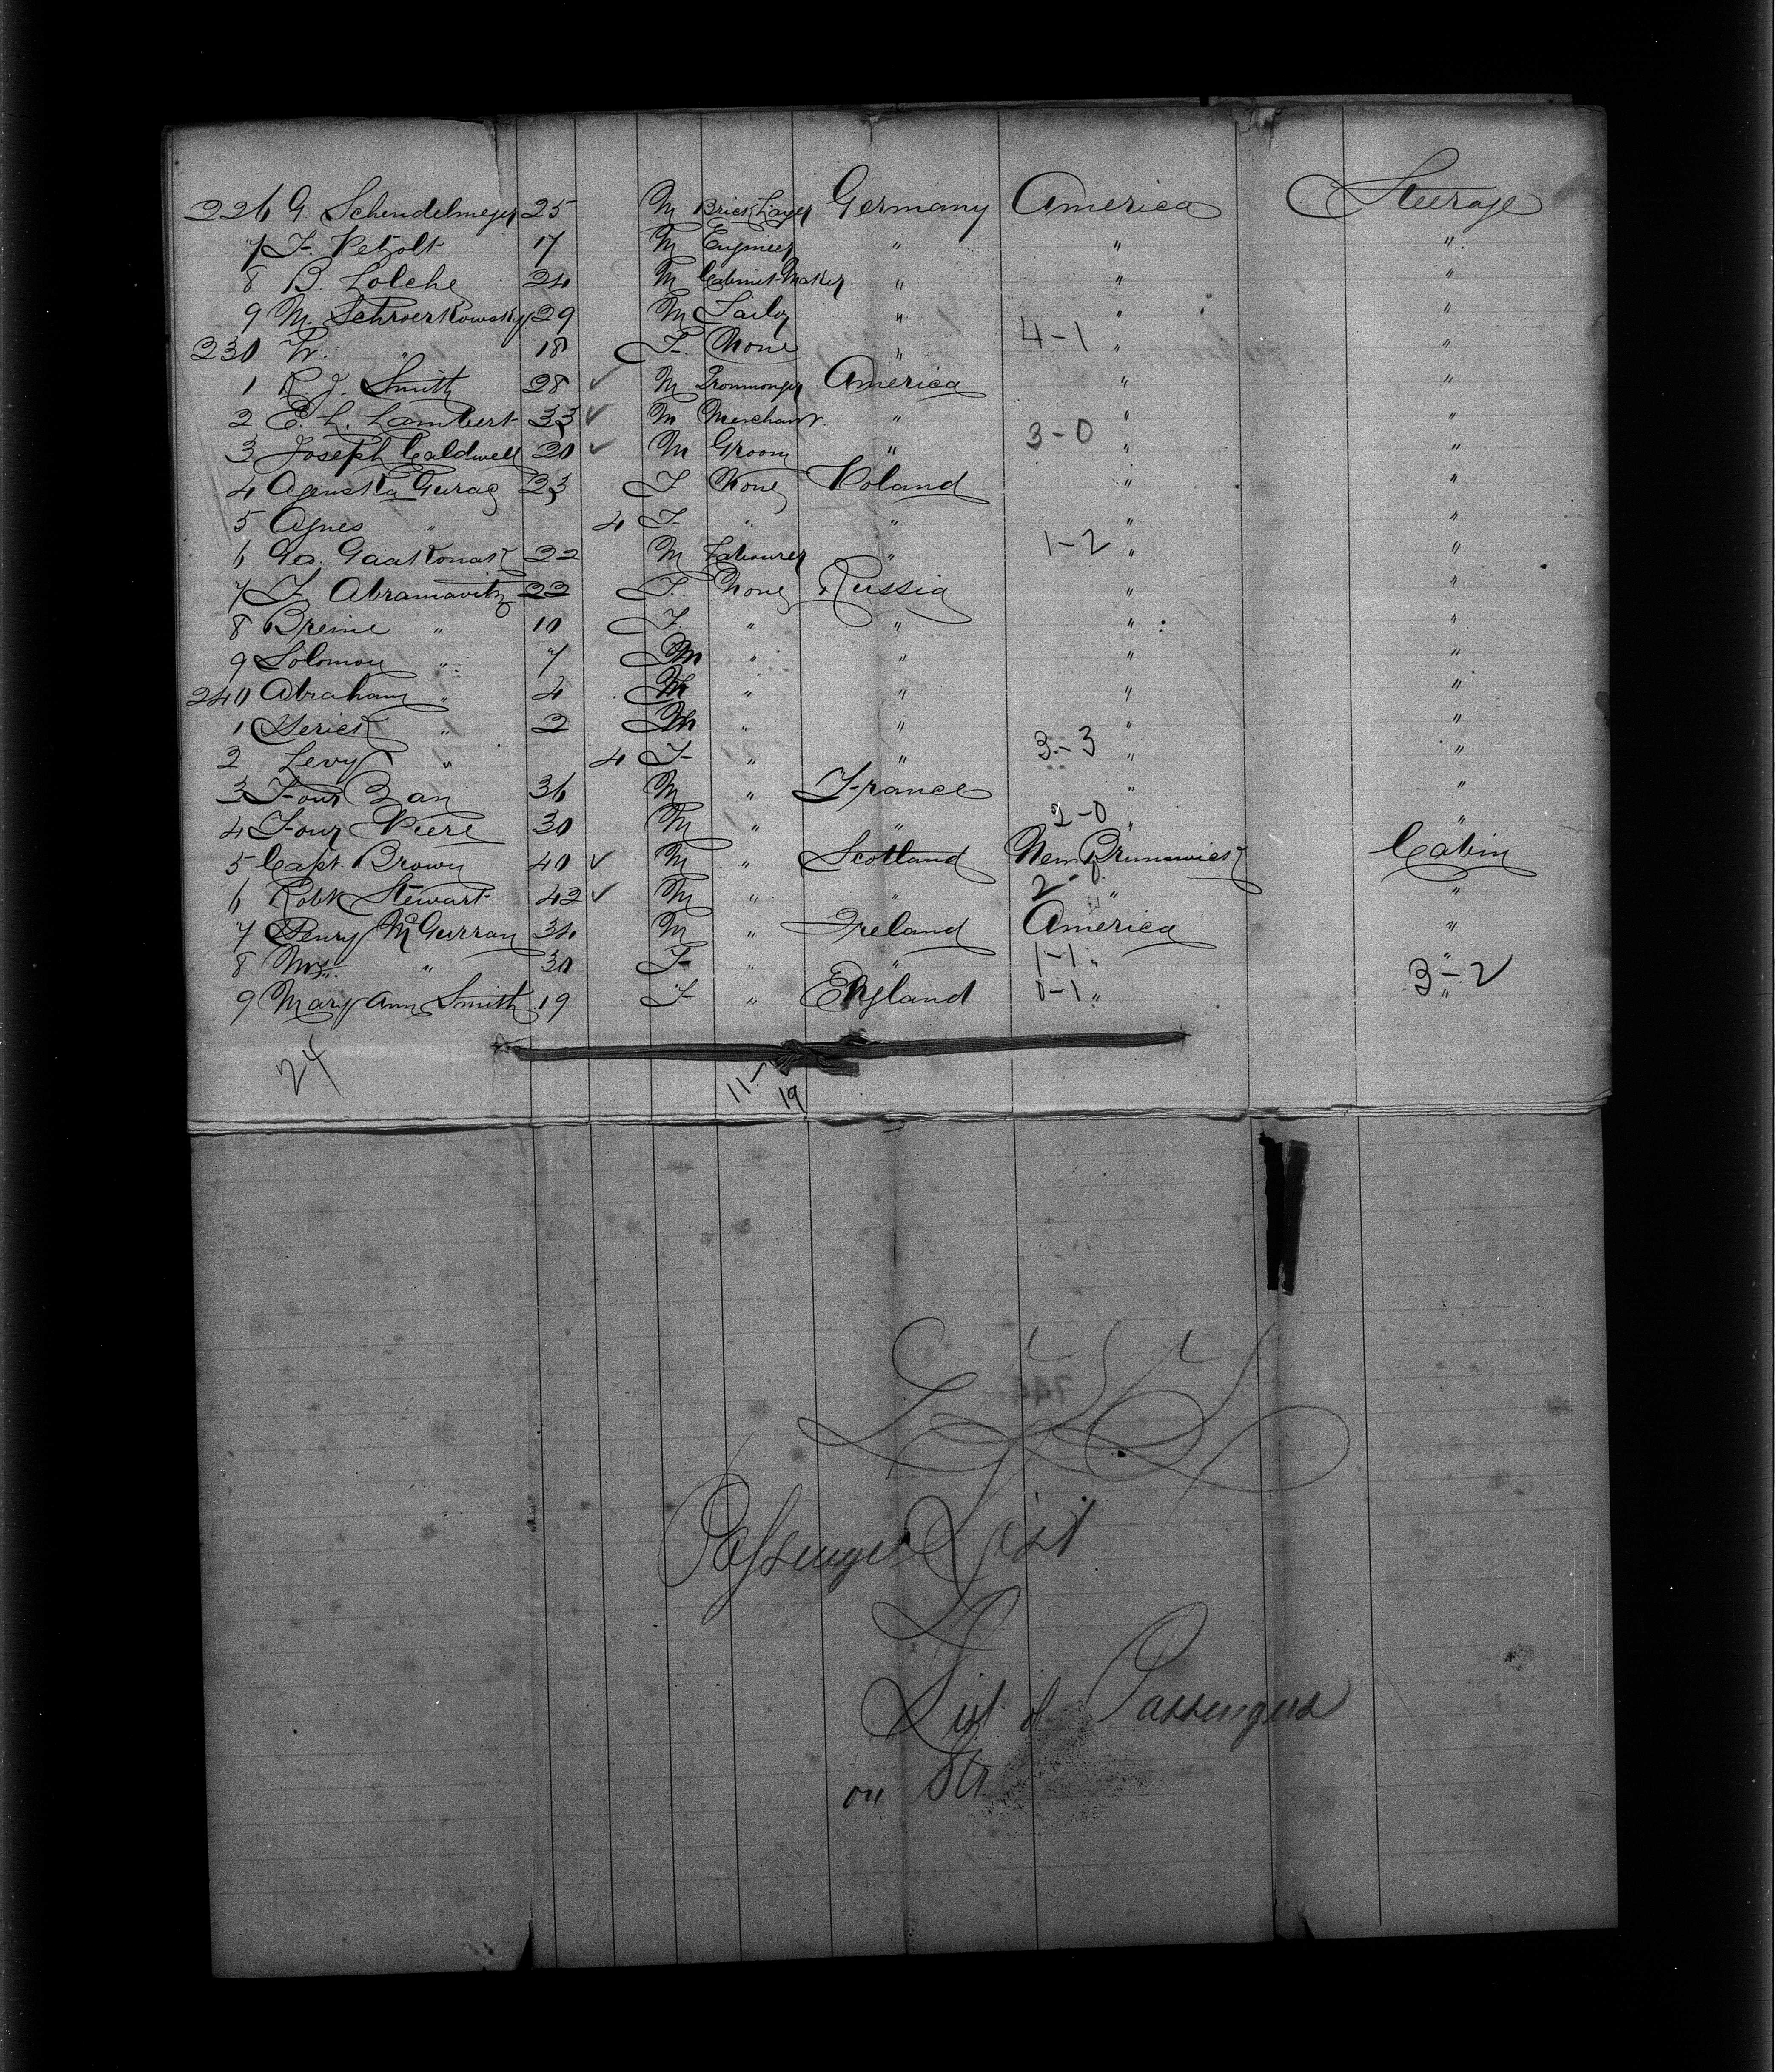 226 G. Schendelmeyer 25 M Brick Layer Germany America Steerage
7 F. Petzolt 17 M Engineer " " "
8 B. Lolche 24 M Cabinet-Maker " " "
9 M. Schroerkowsky 29 M Tailor " " "
230 W. " 18 F. None " 4-1 " "
1 R. J. Smith 28 ✓ M Ironmonger America " "
2 E. L. Lambert 33 ✓ M Merchant " " "
3 Joseph Caldwell 20 ✓ M Groom " 3-0 " "
4 Agenska Gurag 23 F None Poland " "
5 Agnes " 4 F " " " "
6 Geo. Gaatkonask 22 M Labourer " 1-2 " "
7 F. Abramavitz 22 F. None Russia " "
8 Breine " 10 F. " " " "
9 Solomon " 7 M " " " "
240 Abraham " 4 M " " " "
1 Serick " 2 M " " " "
2 Levy " 4 F " " 3-3 " "
3 Four Zan 36 M " France " "
4 Four Piere 30 M " " 2-0 " "
5 Capt. Brown 40 ✓ M " Scotland New Brunswick Cabin
6 Robt Stewart 42 ✓ M " " 2-0 " "
7 Henry McGurran 34 M " Ireland America "
8 Mrs. " 30 F " " 1-1 " "
9 Mary Ann Smith 19 F " England 0-1 " 3-2 "
24
11-
19
Passenger List
List of Passengers
on Str